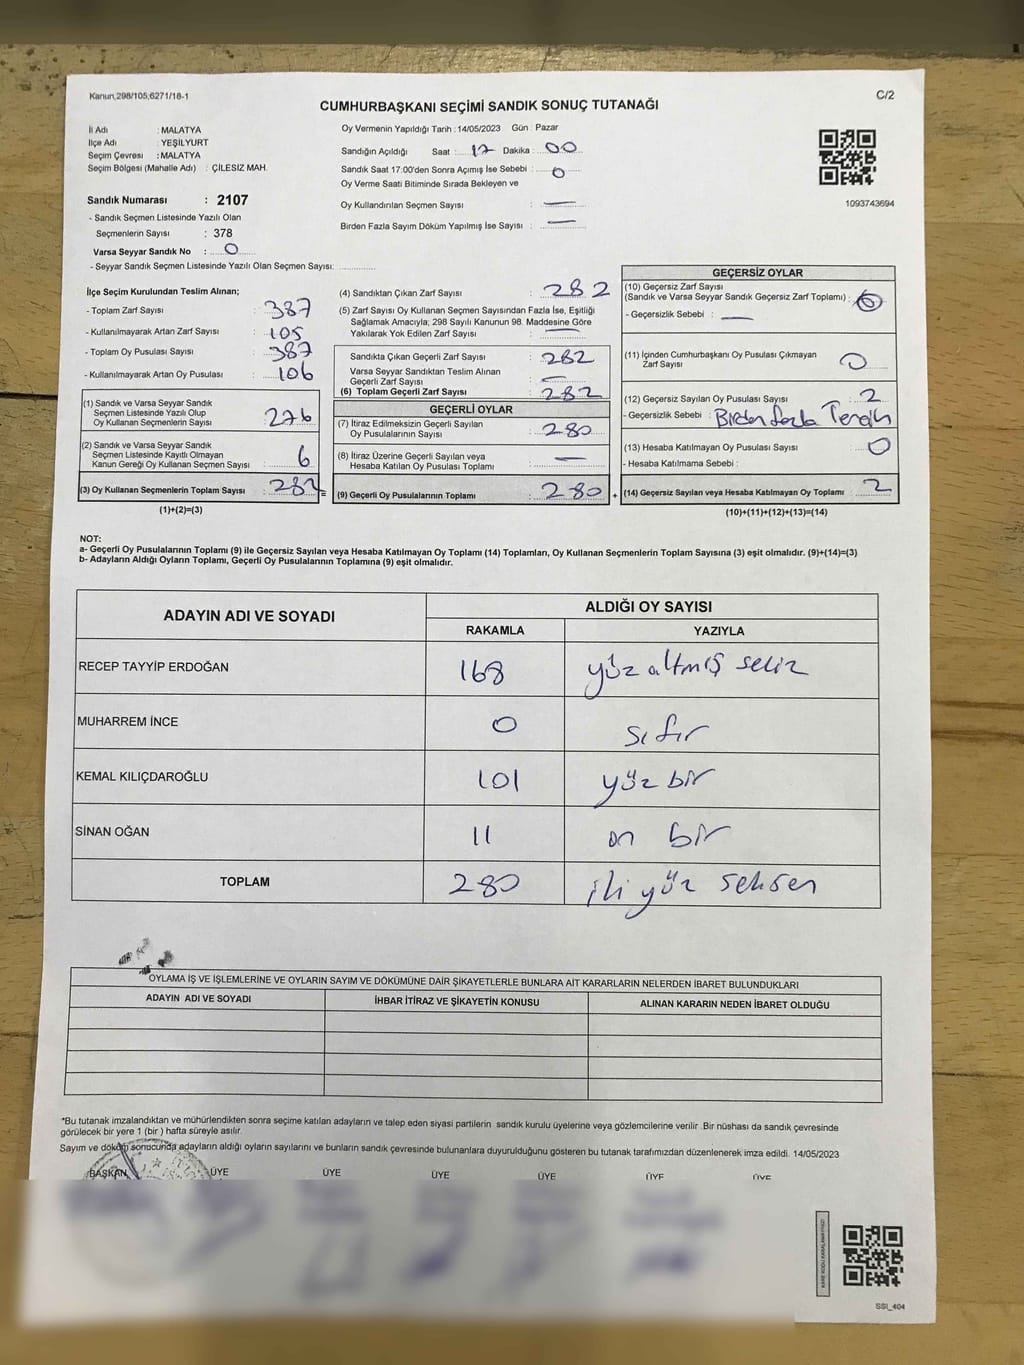 Kanun,298/105,6271/18-1
C/2
CUMHURBAŞKANI SEÇİMİ SANDIK SONUÇ TUTANAĞI
İl Adı : MALATYA
İlçe Adı : YEŞİLYURT
Seçim Çevresi : MALATYA
Seçim Bölgesi (Mahalle Adı) : ÇİLESİZ MAH.
Sandık Numarası : 2107
- Sandık Seçmen Listesinde Yazılı Olan
Seçmenlerin Sayısı : 378
Varsa Seyyar Sandık No : 0
- Seyyar Sandık Seçmen Listesinde Yazılı Olan Seçmen Sayısı:
Oy Vermenin Yapıldığı Tarih : 14/05/2023 Gün : Pazar
Sandığın Açıldığı Saat : 17 Dakika : 00
Sandık Saat 17:00'den Sonra Açılmış İse Sebebi : 0
Oy Verme Saati Bitiminde Sırada Bekleyen ve
Oy Kullandırılan Seçmen Sayısı : —
Birden Fazla Sayım Döküm Yapılmış İse Sayısı : —
1093743694
İlçe Seçim Kurulundan Teslim Alınan;
- Toplam Zarf Sayısı : 387
- Kullanılmayarak Artan Zarf Sayısı : 105
- Toplam Oy Pusulası Sayısı : 387
- Kullanılmayarak Artan Oy Pusulası : 106
(1) Sandık ve Varsa Seyyar Sandık
Seçmen Listesinde Yazılı Olup
Oy Kullanan Seçmenlerin Sayısı : 276
(2) Sandık ve Varsa Seyyar Sandık
Seçmen Listesinde Kayıtlı Olmayan
Kanun Gereği Oy Kullanan Seçmen Sayısı : 6
(3) Oy Kullanan Seçmenlerin Toplam Sayısı : 282 =
(1)+(2)=(3)
(4) Sandıktan Çıkan Zarf Sayısı : 282
(5) Zarf Sayısı Oy Kullanan Seçmen Sayısından Fazla İse, Eşitliği
Sağlamak Amacıyla; 298 Sayılı Kanunun 98. Maddesine Göre
Yakılarak Yok Edilen Zarf Sayısı : —
Sandıkta Çıkan Geçerli Zarf Sayısı : 282
Varsa Seyyar Sandıktan Teslim Alınan
Geçerli Zarf Sayısı : —
(6) Toplam Geçerli Zarf Sayısı : 282
GEÇERLİ OYLAR
(7) İtiraz Edilmeksizin Geçerli Sayılan
Oy Pusulalarının Sayısı : 280
(8) İtiraz Üzerine Geçerli Sayılan veya
Hesaba Katılan Oy Pusulası Toplamı : —
(9) Geçerli Oy Pusulalarının Toplamı : 280 +
GEÇERSİZ OYLAR
(10) Geçersiz Zarf Sayısı
(Sandık ve Varsa Seyyar Sandık Geçersiz Zarf Toplamı) :
- Geçersizlik Sebebi : —
(11) İçinden Cumhurbaşkanı Oy Pusulası Çıkmayan
Zarf Sayısı : 0
(12) Geçersiz Sayılan Oy Pusulası Sayısı : 2
- Geçersizlik Sebebi : Birden fazla Tercih
(13) Hesaba Katılmayan Oy Pusulası Sayısı : 0
- Hesaba Katılmama Sebebi :
(14) Geçersiz Sayılan veya Hesaba Katılmayan Oy Toplamı : 2
(10)+(11)+(12)+(13)=(14)
NOT:
a- Geçerli Oy Pusulalarının Toplamı (9) ile Geçersiz Sayılan veya Hesaba Katılmayan Oy Toplamı (14) Toplamları, Oy Kullanan Seçmenlerin Toplam Sayısına (3) eşit olmalıdır. (9)+(14)=(3)
b- Adayların Aldığı Oyların Toplamı, Geçerli Oy Pusulalarının Toplamına (9) eşit olmalıdır.
ADAYIN ADI VE SOYADI
ALDIĞI OY SAYISI
RAKAMLA YAZIYLA
RECEP TAYYİP ERDOĞAN 168 yüz altmış sekiz
MUHARREM İNCE 0 sıfır
KEMAL KILIÇDAROĞLU 101 yüz bir
SİNAN OĞAN 11 on bir
TOPLAM 280 iki yüz seksen
OYLAMA İŞ VE İŞLEMLERİNE VE OYLARIN SAYIM VE DÖKÜMÜNE DAİR ŞİKAYETLERLE BUNLARA AİT KARARLARIN NELERDEN İBARET BULUNDUKLARI
ADAYIN ADI VE SOYADI İHBAR İTİRAZ VE ŞİKAYETİN KONUSU ALINAN KARARIN NEDEN İBARET OLDUĞU
*Bu tutanak imzalandıktan ve mühürlendikten sonra seçime katılan adayların ve talep eden siyasi partilerin sandık kurulu üyelerine veya gözlemcilerine verilir. Bir nüshası da sandık çevresinde
görülecek bir yere 1 (bir) hafta süreyle asılır.
Sayım ve döküm sonucunda adayların aldığı oyların sayılarını ve bunların sandık çevresinde bulunanlara duyurulduğunu gösteren bu tutanak tarafımızdan düzenlenerek imza edildi. 14/05/2023
BAŞKAN ÜYE ÜYE ÜYE ÜYE ÜYE ÜYE
SSI_404